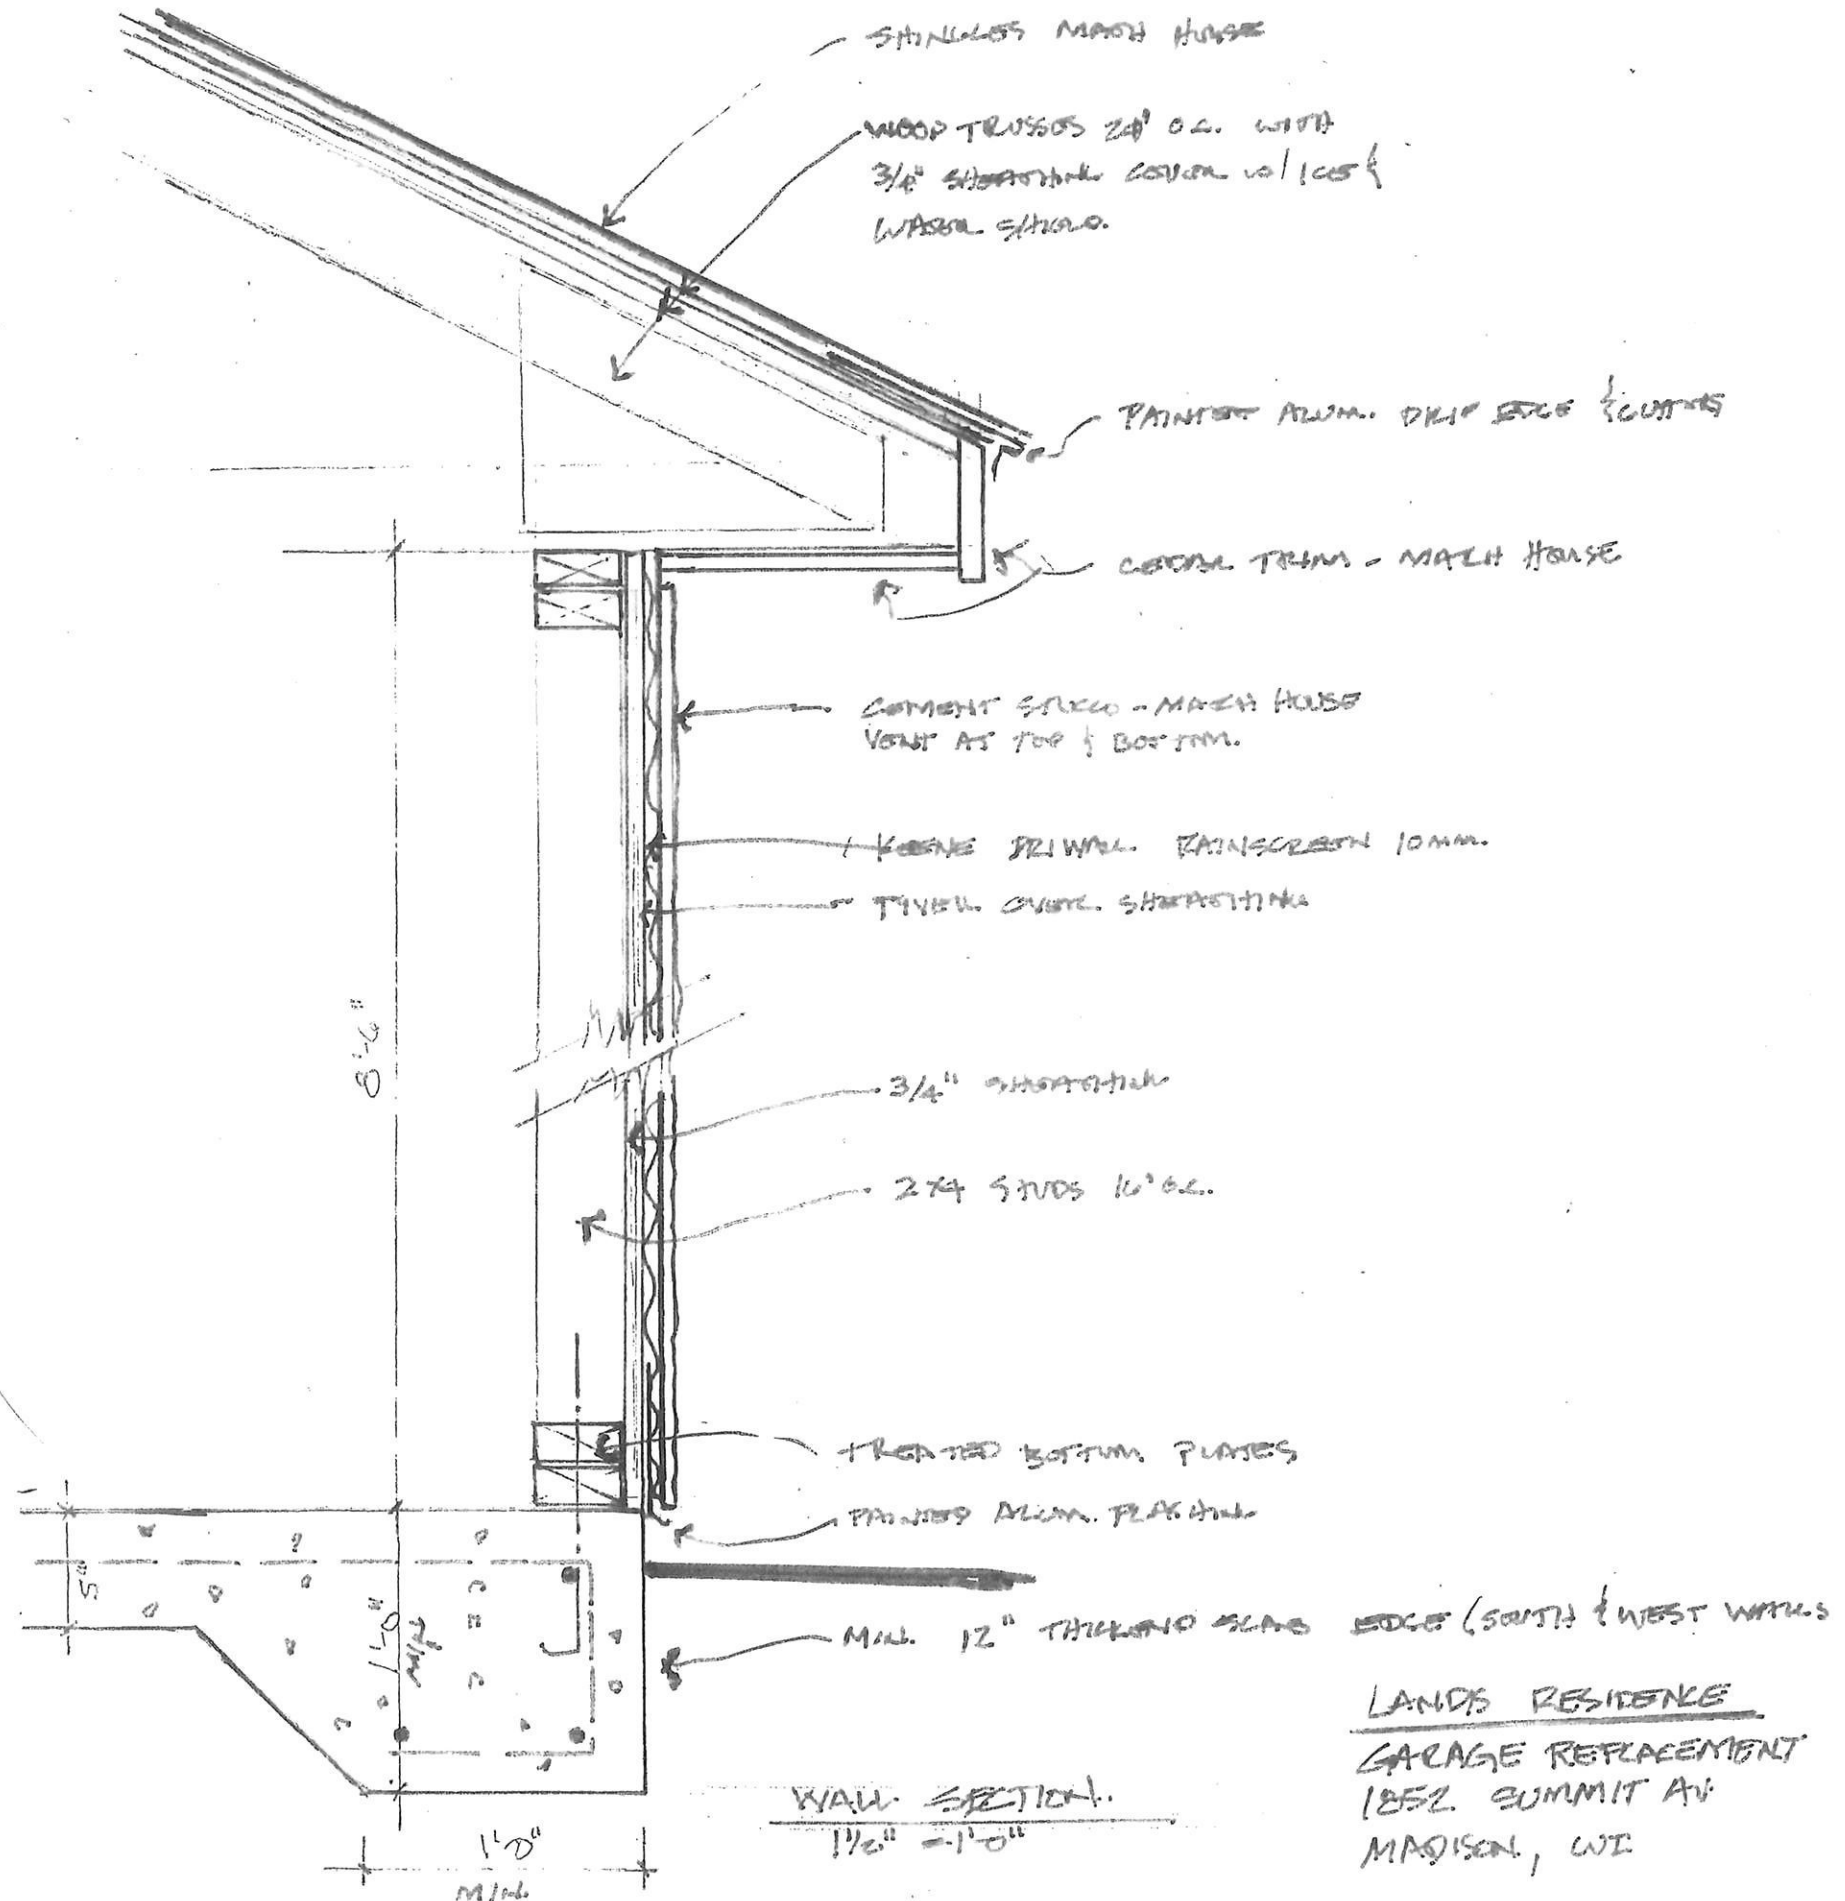 SHINGLES MATCH HOUSE
WOOD TRUSSES 24" O.C. WITH
3/4" SHEATHING COVER W/ ICE &
WATER SHIELD.
PAINTED ALUM. DRIP EDGE & GUTTERS
CEDAR TRIM - MATCH HOUSE
CEMENT STUCCO - MATCH HOUSE
VENT AT TOP & BOTTOM.
KEENE DRIWALL RAINSCREEN 10MM.
TYVEK OVER SHEATHING
8'-6"
3/4" SHEATHING
2X4 STUDS 16" O.C.
TREATED BOTTOM PLATES
PAINTED ALUM. FLASHING
5"
1'-0"
MIN.
MIN. 12" THICKEND SLAB EDGE (SOUTH & WEST WALLS
LANDS RESIDENCE
GARAGE REPLACEMENT
1852 SUMMIT AV
MADISON, WI
WALL SECTION.
1 1/2" = 1'-0"
1'-0"
MIN.